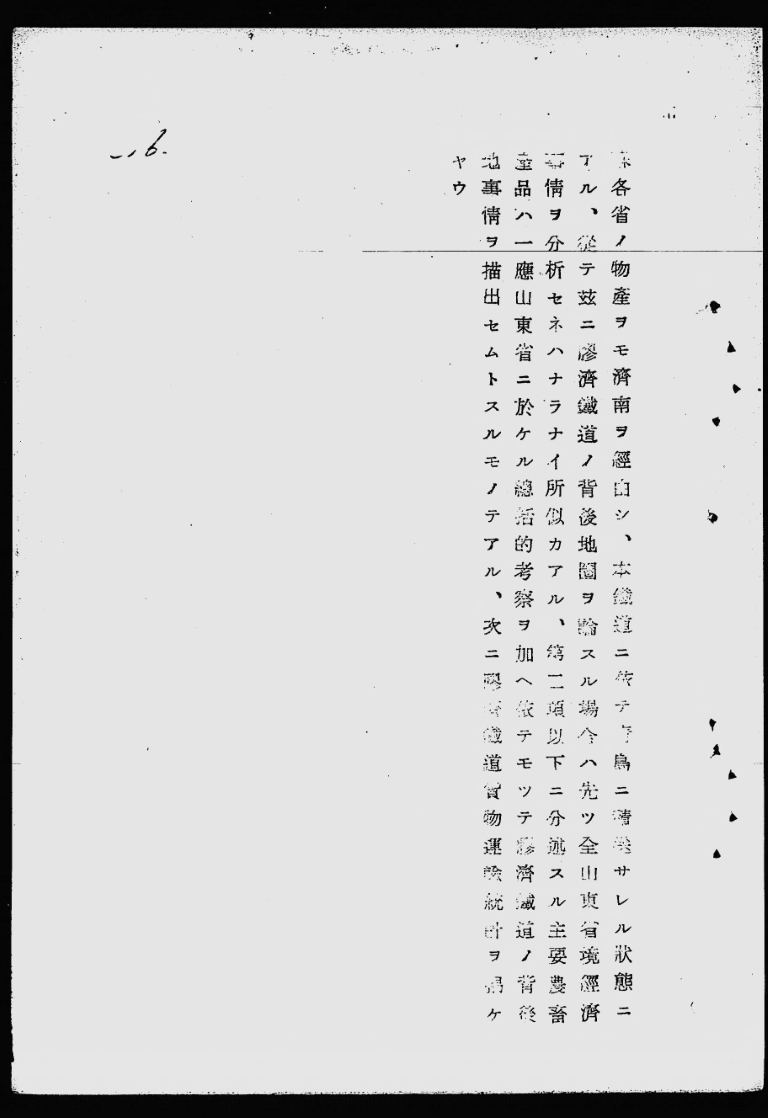 各省ノ物產ヲモ濟南ヲ經由シ、本鐵道ニ依テ島ニ積サレル狀態ニ
アル、從テ茲ニ膠濟鐵道ノ背後地圈ヲ論スル場合ハ先ツ全山東省境經濟
事情ヲ分析セネハナラナイ所似カアル、第二項以下ニ分述スル主要農畜
產品ハ一應山東省ニ於ケル總括的考察ヲ加ヘ依テモツテ膠濟鐵道ノ背後
地事情ヲ描出セムトスルモノテアル、次ニ膠濟鐵道貨物運輸統計ヲ揭ケ
ヤウ
6.